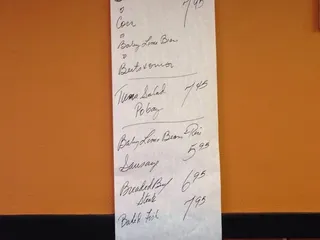 7.95
Corn
Baby Lima Bean
Beets & onion
Tuna Salad 7.45
Poboy
Baby Lima Bean
Sausage 5.95
Breaded Beef 6.95
Steak
Baked Fish 7.95